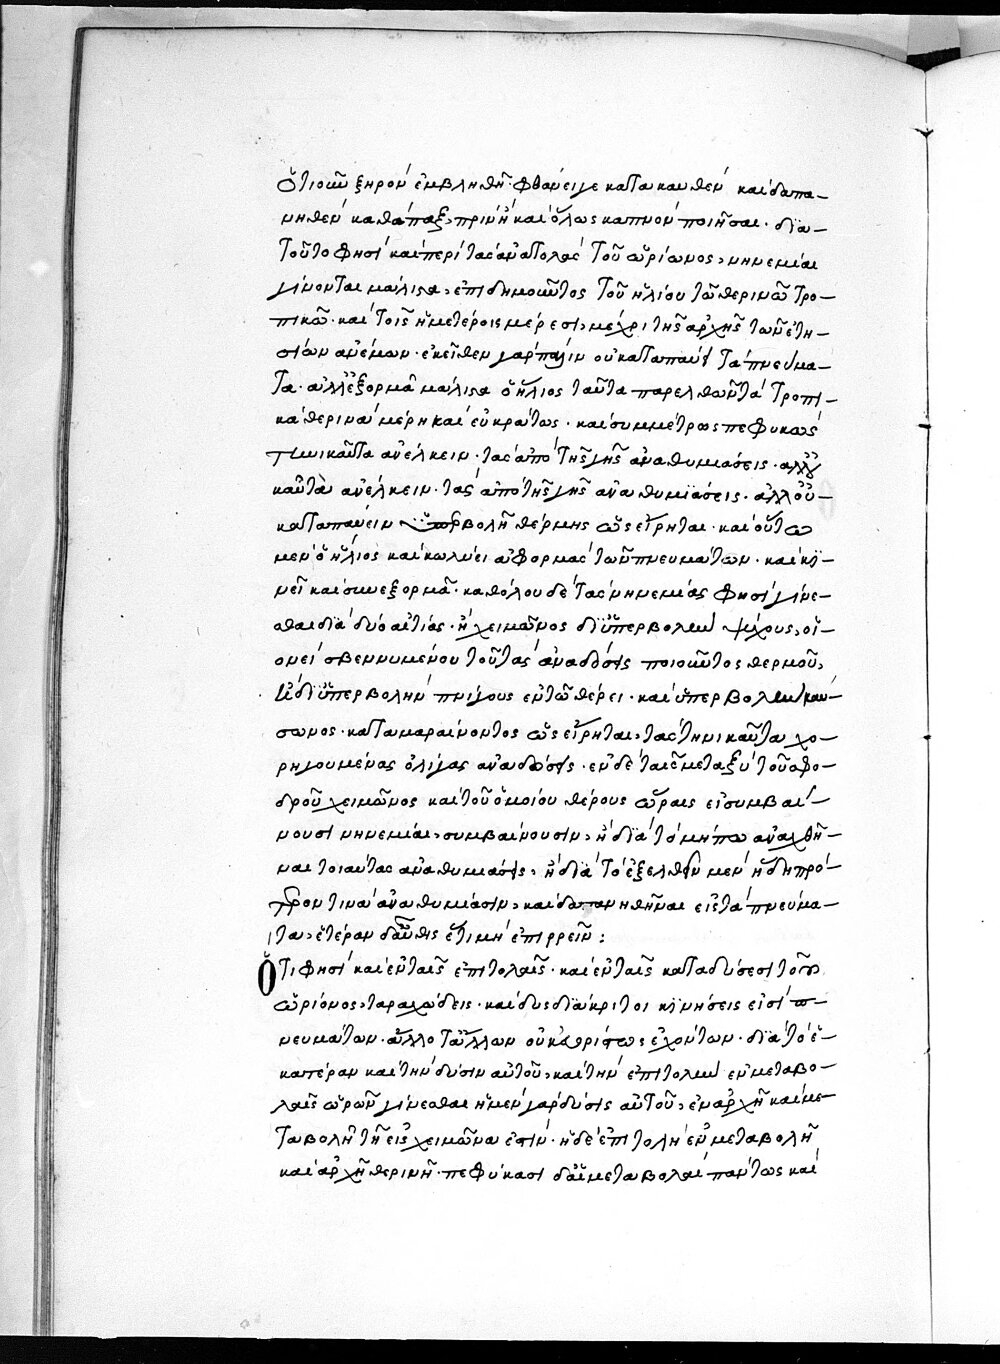 ὅτιοῦν ξηρὸν ἐμβληθῆ· φθάνει γε κατακαυθὲν καὶ δαπα-
νηθὲν καθάπαξ, πρὶν ἢ καὶ ὅλως καπνὸν ποιῆσαι· διὰ
τοῦτο φησὶ καὶ περὶ τὰς ἀνατολὰς τοῦ ὠρίωνος, νηνεμίαι
γίνονται μάλιστα, ἐπιδημοῦντος τοῦ ἡλίου τῶ θερινῶ τρο-
πικῶ· καὶ τοῖς ἡμετέροις μέρεσι, μέχρι τῆς ἀρχῆς τῶν ἐτη-
σίων ἀνέμων· ἐκεῖθεν γὰρ πάλιν οὐ καταπαύει τὰ πνεύμα-
τα· ἀλλ' ἐξορμᾶ μάλιστα ὁ ἥλιος ταῦτα παρελθὼν τὰ τροπι-
κὰ θερινὰ μέρη καὶ εὐκράτως· καὶ συμμέτρως πεφυκὼς
τηνικαῦτα ἀνέλκειν· τὰς ἀπὸ τῆς γῆς ἀναθυμιάσεις· ἀλλ' οὐ
καῦτα ἀνέλκειν· τὰς ἀπὸ τῆς γῆς ἀναθυμιάσεις· ἀλλ' οὐ-
καταπαύειν ὑπερβολῆ θέρμης ὡς εἴρηται· καὶ οὕτω
μὲν ὁ ἥλιος καὶ κωλύει ἀφορμὰς τῶν πνευμάτων· καὶ κι-
νεῖ καὶ συνεξορμᾶ· καθόλου δὲ τὰς νηνεμίας φησὶ γίνε-
σθαι διὰ δύο αἰτίας· ἢ χειμῶνος δι' ὑπερβολὴν ψύχους, οἱ-
ονεὶ σβεννυμένου τούτας ἀναδόσεις ποιοῦντος θερμοῦ,
ἢ δι' ὑπερβολὴν πνίγους ἐν τῶ θέρει· καὶ ὑπερβολὴν καύ-
σωνος· καταμαραίνοντος ὡς εἴρηται, τὰς τηνικαῦτα χο-
ρηγουμένας ὀλίγας ἀναδόσεις· ἐν δὲ ταῖς μεταξὺ τοῦ σφο-
δροῦ χειμῶνος καὶ τοῦ ὁμοίου θέρους ὥραις εἰ συμβαί-
νουσι νηνεμίαι, συμβαίνουσιν, ἢ διὰ τὸ μήπω ἀναχθῆ-
ναι τοιαύτας ἀναθυμιάσεις, ἢ διὰ τὸ ἐξελθεῖν μὲν ἤδη πρό-
τερον τινὰ ἀναθυμίασιν, καὶ δαπανηθῆναι εἰς τὰ πνεύμα-
τα, ἑτέραν δ' αὖθις ἔτι μὴ ἐπιρρεῖν:
Ὅτι φησὶ καὶ ἐν ταῖς ἐπιτολαῖς· καὶ ἐν ταῖς καταδύσεσι τοῦ
ὠρίονος, ταραχώδεις· καὶ δυσδιάκριτοι κινήσεις εἰσὶ π-
νευμάτων· ἄλλοτ' ἄλλων οὐκ ἀφρίστως ἐχόντων· διὰ τὸ ἑ-
κατέραν καὶ τὴν δύσιν αὐτοῦ, καὶ τὴν ἐπιτολὴν ἐν μεταβο-
λαῖς ὡρῶν γίνεσθαι ἡ μὲν γὰρ δύσις αὐτοῦ, ἐν ἀρχῆ καὶ με-
ταβολῆ τῆ εἰς χειμῶνα ἐστίν· ἡ δὲ ἐπιτολὴ ἐν μεταβολῆ
καὶ ἀρχῆ θερινῆ· πεφύκασι δ' αἱ μεταβολαὶ πάντως καὶ